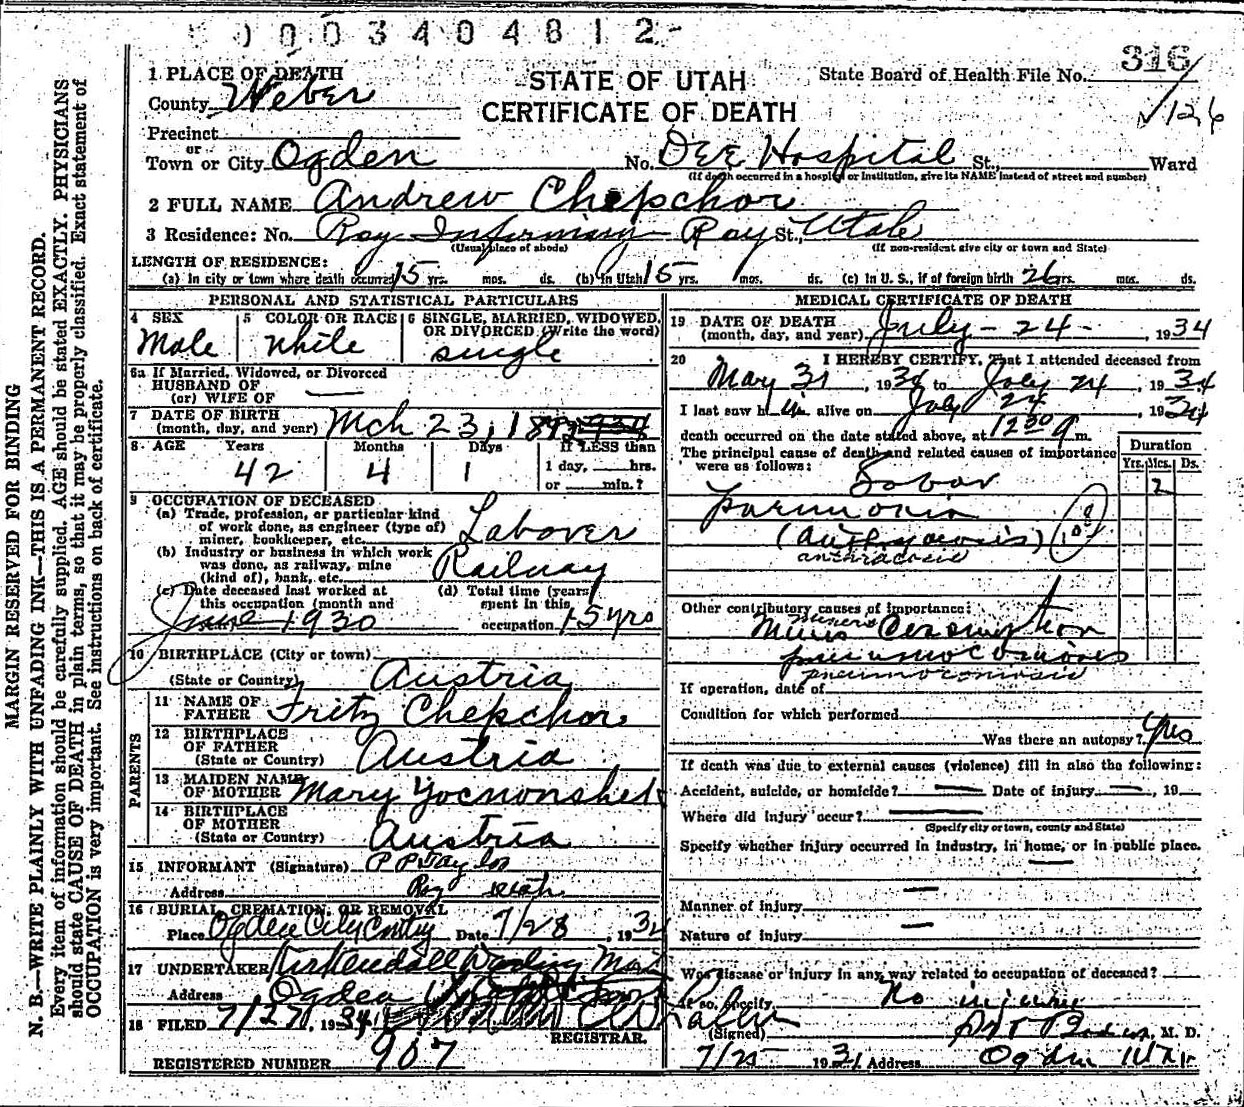 0003404812
316
✓126
1 PLACE OF DEATH
STATE OF UTAH
CERTIFICATE OF DEATH
State Board of Health File No.
County Weber
Precinct
or
Town or City Ogden No. Dee Hospital St., Ward
(If death occurred in a hospital or institution, give its NAME instead of street and number)
2 FULL NAME Andrew Chepchor
3 Residence: No. Roy Infirmary Roy St., Utah
(Usual place of abode) (If non-resident give city or town and State)
LENGTH OF RESIDENCE:
(a) In city or town where death occurred 15 yrs. mos. ds. (b) In Utah 15 yrs. mos. ds. (c) In U. S., if of foreign birth 26 yrs. mos. ds.
PERSONAL AND STATISTICAL PARTICULARS
4 SEX Male
5 COLOR OR RACE White
6 SINGLE, MARRIED, WIDOWED, OR DIVORCED (Write the word) single
6a If Married, Widowed, or Divorced
HUSBAND OF
(or) WIFE OF
7 DATE OF BIRTH
(month, day, and year) Mch 23, 1892
8 AGE Years Months Days If LESS than
42 4 1 1 day, hrs.
or min.?
9 OCCUPATION OF DECEASED
(a) Trade, profession, or particular kind
of work done, as engineer (type of)
miner, bookkeeper, etc. Laborer
(b) Industry or business in which work
was done, as railway, mine
(kind of), bank, etc. Railway
(c) Date deceased last worked at
this occupation (month and
June 1930
(d) Total time (years)
spent in this
occupation 15 yrs
10 BIRTHPLACE (City or town)
(State or Country) Austria
PARENTS
11 NAME OF
FATHER Fritz Chepchor
12 BIRTHPLACE
OF FATHER
(State or Country) Austria
13 MAIDEN NAME
OF MOTHER Mary
14 BIRTHPLACE
OF MOTHER
(State or Country) Austria
15 INFORMANT (Signature)
Address Roy Utah
16 BURIAL, CREMATION, OR REMOVAL
Place Ogden City Date 7/28, 193
17 UNDERTAKER Kirkendall
Address Ogden
18 FILED 7/27, 1934
REGISTRAR.
REGISTERED NUMBER 907
MEDICAL CERTIFICATE OF DEATH
19 DATE OF DEATH
(month, day, and year) July - 24 - , 1934
20 I HEREBY CERTIFY, That I attended deceased from
May 31, 1934 to July 24, 1934
I last saw him alive on July 24, 1934
death occurred on the date stated above, at 1230 m.
The principal cause of death and related causes of importance
were as follows:
Duration
Yrs. Mos. Ds.
2
Lobar
pneumonia
(anthracosis)
anthracosis
Other contributory causes of importance:
Miners
Miners Consumption
pneumoconiosis
pneumoconiosis
If operation, date of
Condition for which performed
Was there an autopsy? yes
If death was due to external causes (violence) fill in also the following:
Accident, suicide, or homicide? Date of injury , 19
Where did injury occur?
(Specify city or town, county and State)
Specify whether injury occurred in industry, in home, or in public place.
Manner of injury
Nature of injury
Was disease or injury in any way related to occupation of deceased?
If so, specify No injury
(Signed) M. D.
7/25 1934 Address Ogden Utah
MARGIN RESERVED FOR BINDING
N. B.—WRITE PLAINLY WITH UNFADING INK—THIS IS A PERMANENT RECORD.
Every item of information should be carefully supplied. AGE should be stated EXACTLY. PHYSICIANS
should state CAUSE OF DEATH in plain terms, so that it may be properly classified. Exact statement of
OCCUPATION is very important. See instructions on back of certificate.